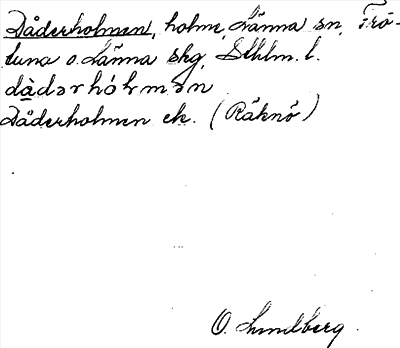 Dåderholmen, holme, Länna sn, Frö-
tuna o. Länna skg, Sthlm. l.
dàdərhólmən
Dåderholmen ek. (Räknö)
O. Lundberg